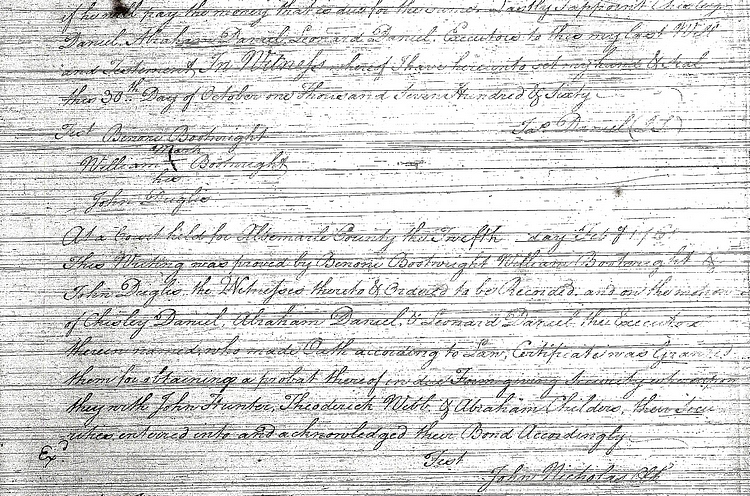 if he will pay the money that is due for the same Lastly I appoint Chisley
Daniel, Abraham Daniel, Leonard Daniel, Executors to this my last Will
and Testament, In Witness whereof I have hereunto set my hand & Seal
this 30th Day of October one Thousand Seven Hundred & Sixty
Test Benone Bootwright
Jas Daniel (L.S.)
Mark
William Bootwright
his
John Duglis
At a Court held for Albemarle County the Twelfth day Feb y 176
This Writing was proved by Benone Bootwright William Bootwright &
John Duglis the Witnesses thereto & Ordered to be Recorded, and on the motion
of Chisley Daniel, Abraham Daniel, & Leonard Daniel, the Executors
therein named, who made Oath according to Law, Certificate was Granted
them for obtaining a probat thereof in due Form giving Security whereupon
they with John Hunter, Theoderick Webb, & Abraham Childers, their Secu
rities entered into and acknowledged their Bond Accordingly
Exd
Test
John Nicholas Clk